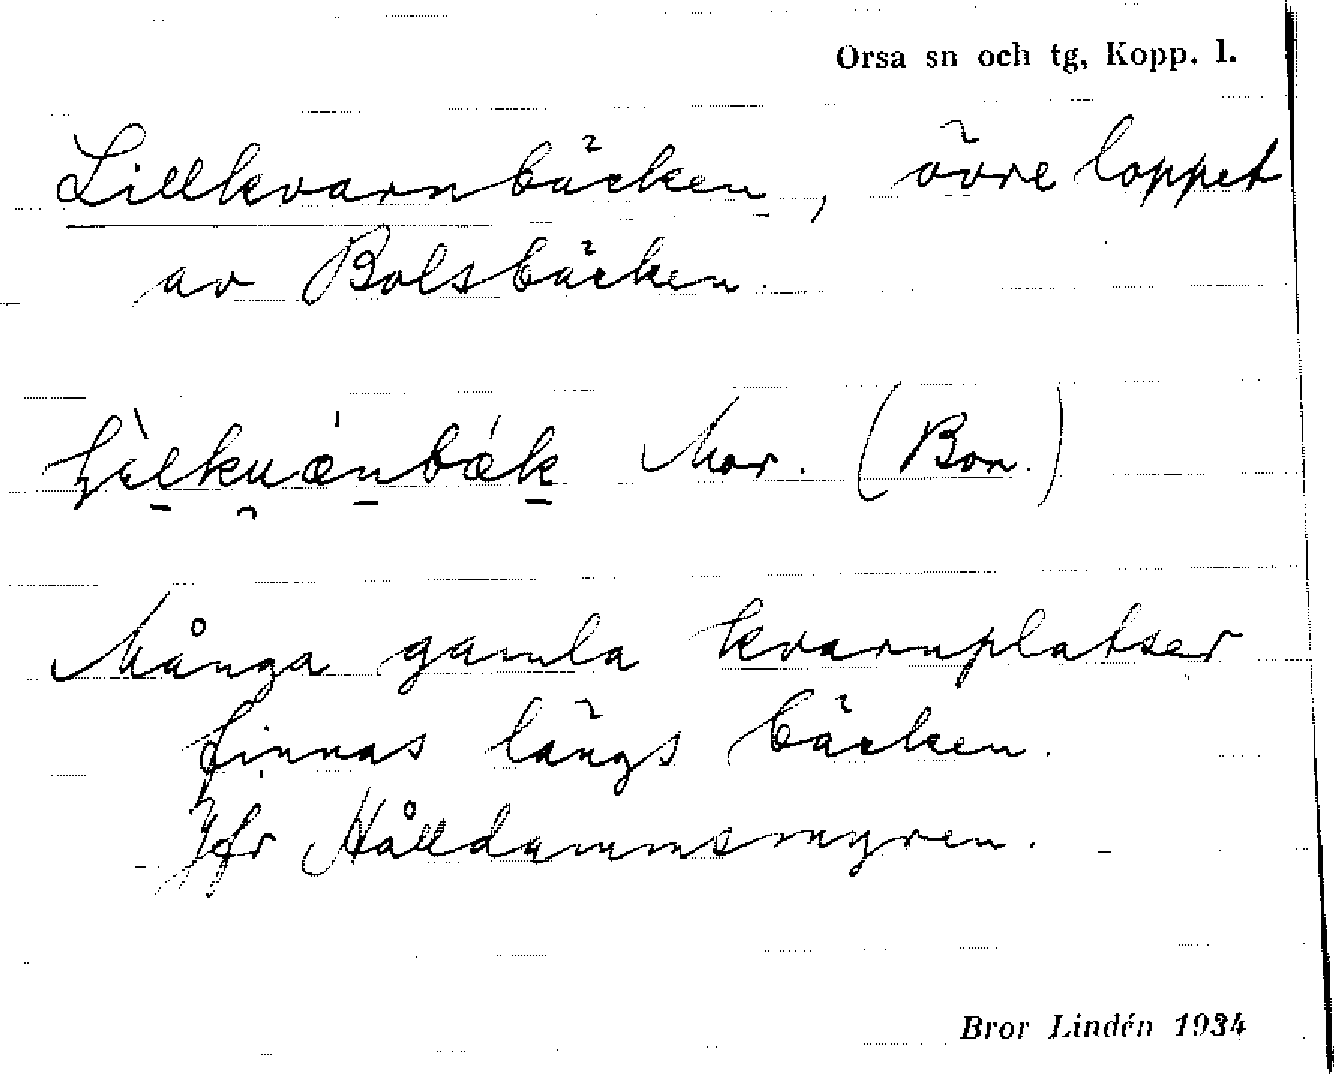 Orsa sn och tg, Kopp. l.
Lillkvarnbäcken, övre loppet
av Bolsbäcken.
Mor. (Bon.)
Många gamla kvarnplatser
finnas längs bäcken.
Jfr Hålldammsmyren.
Bror Lindén 1934